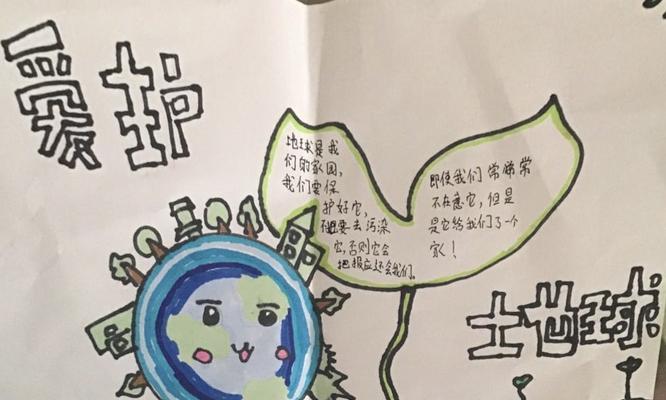 爱护
地球是我
们的家园,
我们要保
护好它,
要去污染
它,否则它会
把报应还会我们。
即使我们常常
不在意它,但是
是它给我们了一个
家!
地球